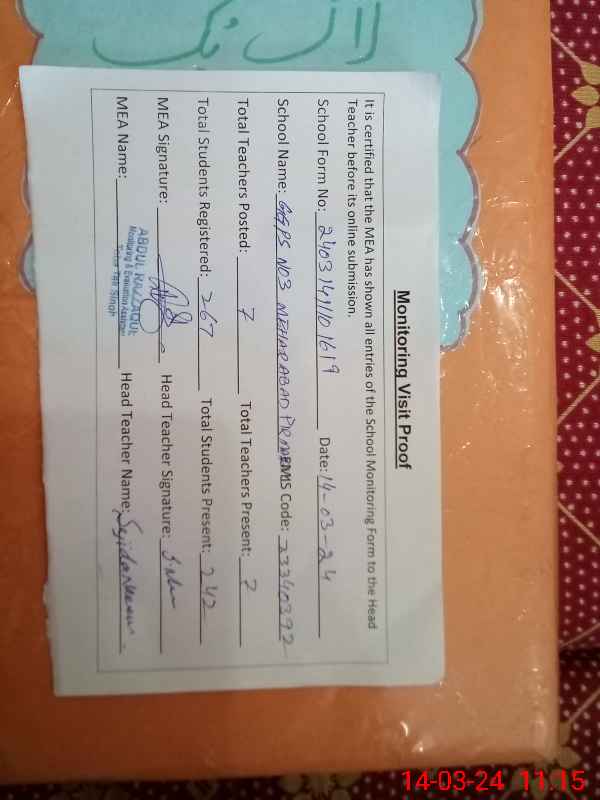 Monitoring Visit Proof
It is certified that the MEA has shown all entries of the School Monitoring Form to the Head
Teacher before its online submission.
School Form No: 2403141101619 Date: 14-03-24
School Name: GGPS NO3 MEHAR ABAD EMIS Code: 33340392
Total Teachers Posted: 7 Total Teachers Present: 7
Total Students Registered: 267 Total Students Present: 242
MEA Signature: Head Teacher Signature:
MEA Name: ABDUL RAZZAQUE Head Teacher Name:
Monitoring & Evaluation Assistant
Toba Tek Singh
14-03-24 11:15